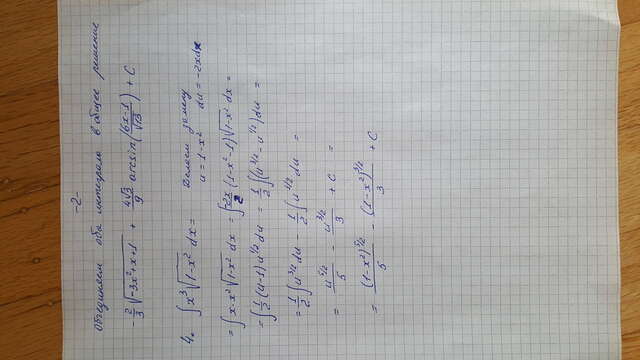 -2-
Объединяем оба интеграла в общее решение
-2/3 √(-3x²+x+1) + 4√3/9 arcsin((6x-1)/√13) + C
4. ∫x³√(1-x²) dx = Делаем замену
u = 1-x² du = -2xdx
= ∫x·x²√(1-x²) dx = ∫-2x/2 (1-x²-1)√(1-x²) dx =
= ∫1/2 (u-1)u^(1/2) du = 1/2 ∫(u^(3/2) - u^(1/2))du =
= 1/2 ∫u^(3/2) du - 1/2 ∫u^(1/2) du =
= u^(5/2)/5 - u^(3/2)/3 + C =
= (1-x²)^(5/2)/5 - (1-x²)^(3/2)/3 + C